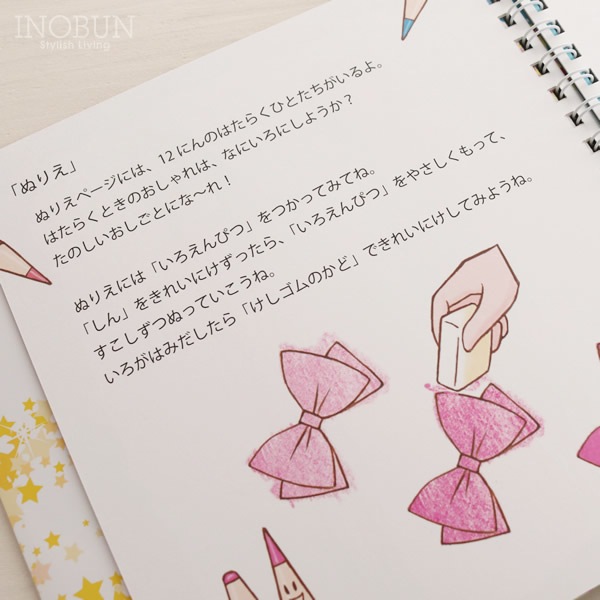 INOBUN
Stylish Living
「ぬりえ」
ぬりえページには、12にんのはたらくひとたちがいるよ。
はたらくときのおしゃれは、なにいろにしようか?
たのしいおしごとにな〜れ!
ぬりえには「いろえんぴつ」をつかってみてね。
「しん」をきれいにけずったら、「いろえんぴつ」をやさしくもって、
すこしずつぬっていこうね。
いろがはみだしたら「けしゴムのかど」できれいにけしてみようね。